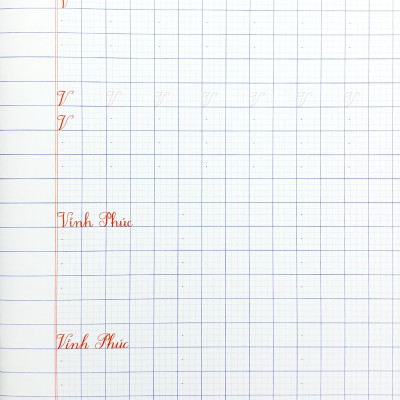 V
V V V V V V V
V
Vĩnh Phúc
Vĩnh Phúc